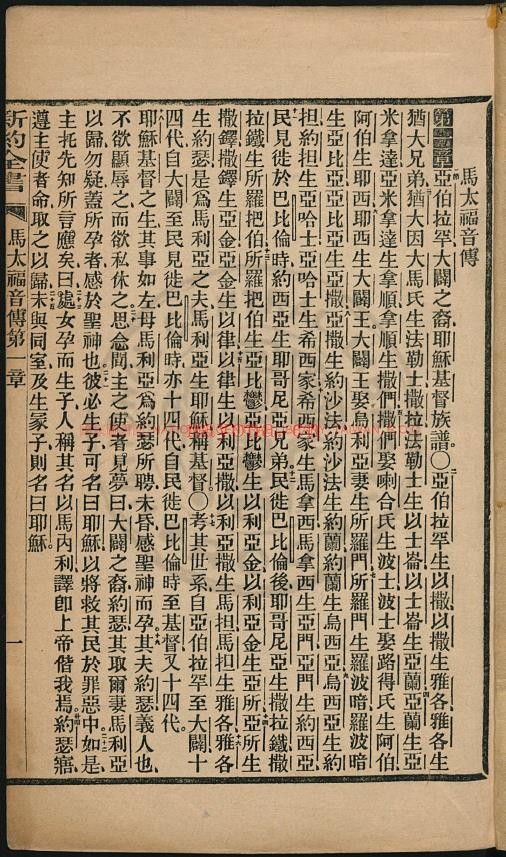 馬太福音傳
第一章亞伯拉罕大闢之裔耶穌基督族譜○亞伯拉罕生以撒以撒生雅各雅各生
猶大兄弟猶大因大馬氏生法勒士撒拉法勒士生以士崙以士崙生亞蘭亞蘭生亞
米拿達亞米拿達生拿順拿順生撒們撒們娶喇合氏生波士波士娶路得氏生阿伯
阿伯生耶西耶西生大闢王大闢王娶烏利亞妻生所羅門所羅門生羅波暗羅波暗
生亞比亞亞比亞生亞撒亞撒生約沙法約沙法生約蘭約蘭生烏西亞烏西亞生約
担約担生亞哈士亞哈士生希西家希西家生馬拿西馬拿西生亞門亞門生約西亞
民見徙於巴比倫時約西亞生耶哥尼亞兄弟民徙巴比倫後耶哥尼亞生撒拉鐵撒
拉鐵生所羅把伯所羅把伯生亞比鬱亞比鬱生以利亞金以利亞金生亞所亞所生
撒鐸撒鐸生亞金亞金生以律以律生以利亞撒以利亞撒生馬担馬担生雅各雅各
生約瑟是為馬利亞之夫馬利亞生耶穌稱基督○考其世系自亞伯拉罕至大闢十
四代自大闢至民見徙巴比倫時亦十四代自民徙巴比倫時至基督又十四代
耶穌基督之生其事如左母馬利亞為約瑟所聘未昏感聖神而孕其夫約瑟義人也
不欲顯辱之而欲私休之思念間主之使者見夢曰大闢之裔約瑟其取爾妻馬利亞
以歸勿疑蓋所孕者感於聖神也彼必生子可名曰耶穌以將救其民於罪惡中如是
主托先知所言應矣曰處女孕而生子人稱其名以馬內利譯即上帝偕我焉約瑟寤
遵主使者命取之以歸未與同室及生冢子則名曰耶穌
新約全書 馬太福音傳第一章 一